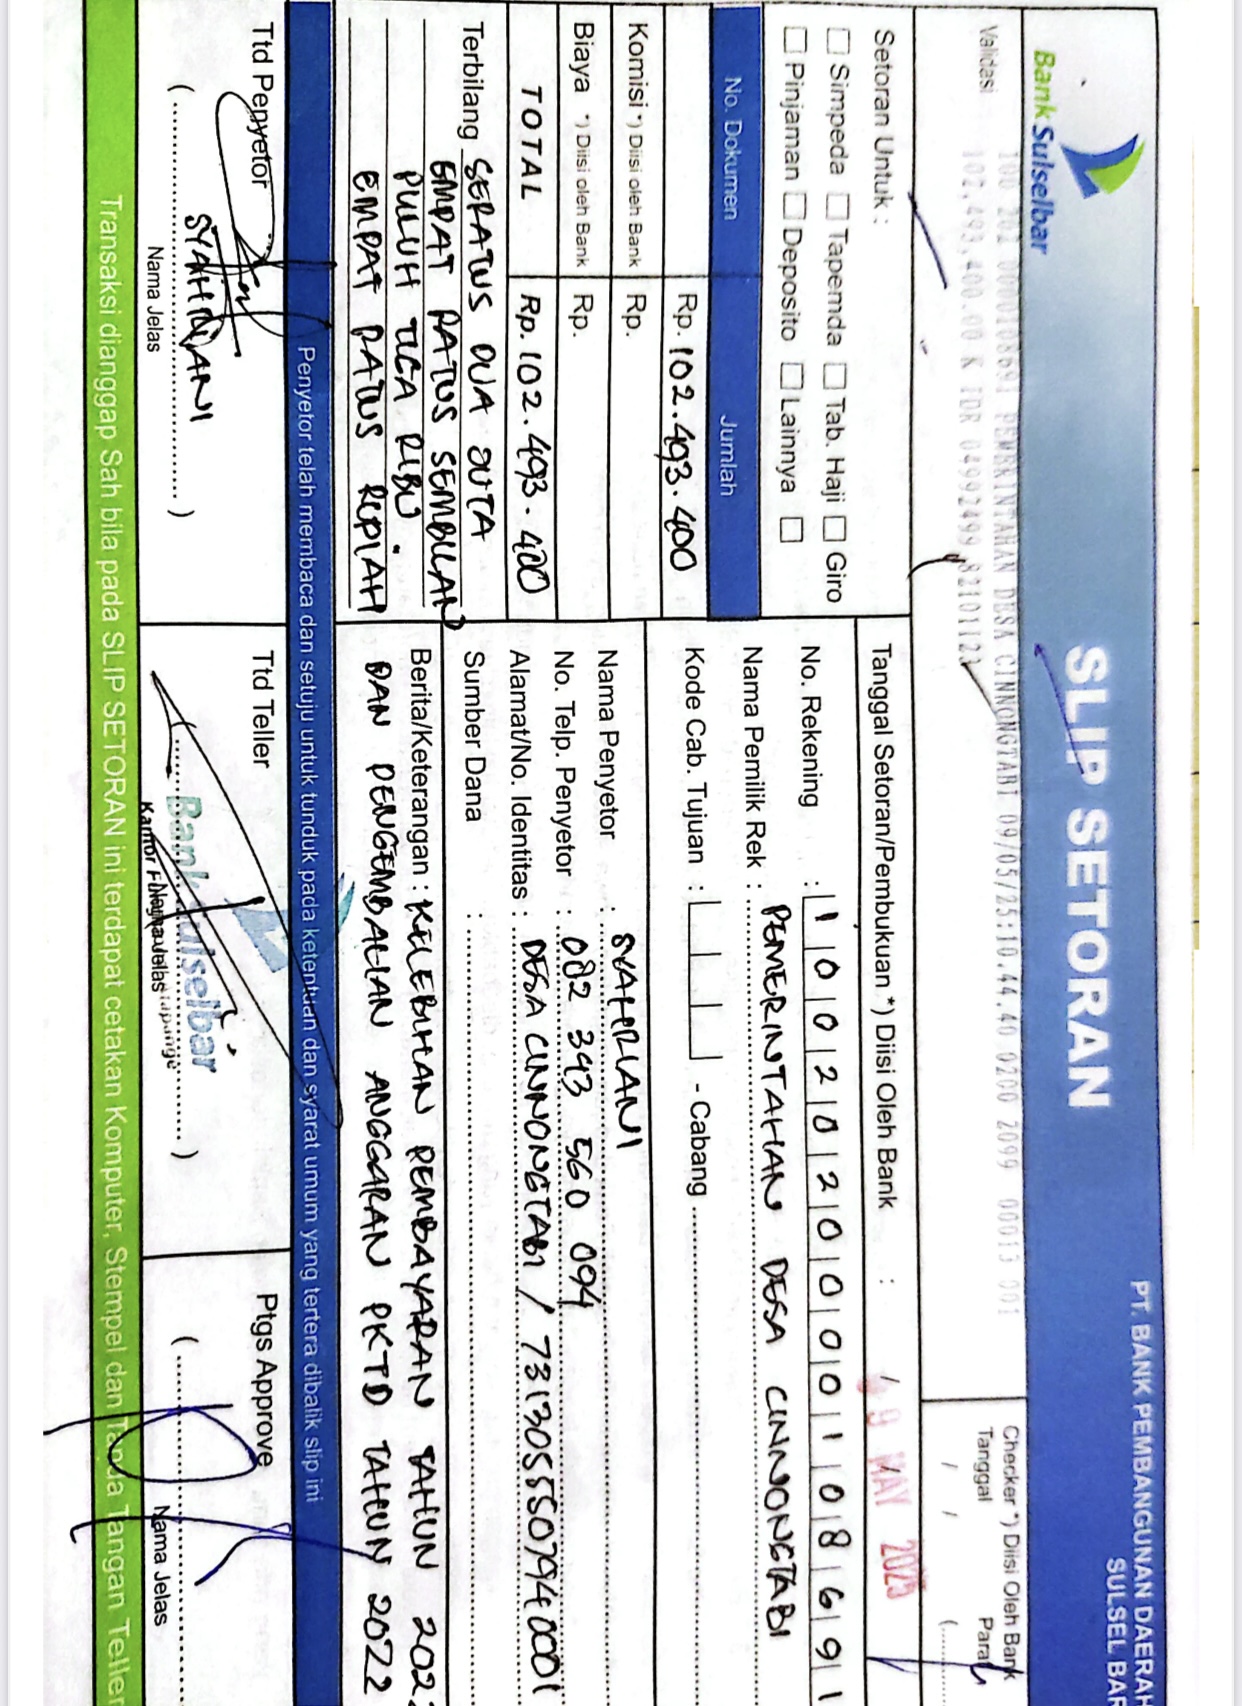 BankSulselbar
SLIP SETORAN
PT. BANK PEMBANGUNAN DAERAH
SULSEL BAR
Validasi
100 202 000010869 1 PEMERINTAHAN DESA CINNONGTABI 09/05/25:10.44.40 0200 2099 00013 001
102,493,400.00 K TDR 04992499 82101121
Checker *) Diisi Oleh Bank
Tanggal
Paraf
/ /
(
Setoran Untuk :
Simpeda Tapenda Tab. Haji Giro
Pinjaman Deposito Lainnya
No. Dokumen Jumlah
Rp. 102.493.400
Komisi *) Diisi oleh Bank Rp.
Biaya *) Diisi oleh Bank Rp.
TOTAL Rp. 102.493.400
Terbilang SERATUS DUA JUTA
EMPAT RATUS SEMBILAN
PULUH TIGA RIBU.
EMPAT RATUS RUPIAH
Tanggal Setoran/Pembukuan *) Diisi Oleh Bank : 9 MAY 2025
No. Rekening : 1002020000108691
Nama Pemilik Rek : PEMERINTAHAN DESA CINNONGTABI
Kode Cab. Tujuan : - Cabang
Nama Penyetor : SYAHRIANI
No. Telp. Penyetor : 082 343 560 094
Alamat/No. Identitas : DESA CINNONGTABI / 7313055507940001
Sumber Dana :
Berita/Keterangan : KELEBIHAN PEMBAYARAN TAHUN
DAN PENGEMBALIAN ANGGARAN PKTD TAHUN 2022
Penyetor telah membaca dan setuju untuk tunduk pada ketentuan dan syarat umum yang tertera dibalik slip ini
Ttd Penyetor
( SYAHRIANI )
Nama Jelas
Ttd Teller
BankSulselbar
( )
Nama Jelas
Ptgs Approve
(
Nama Jelas
Transaksi dianggap Sah bila pada SLIP SETORAN ini terdapat cetakan Komputer, Stempel dan Tanda Tangan Teller